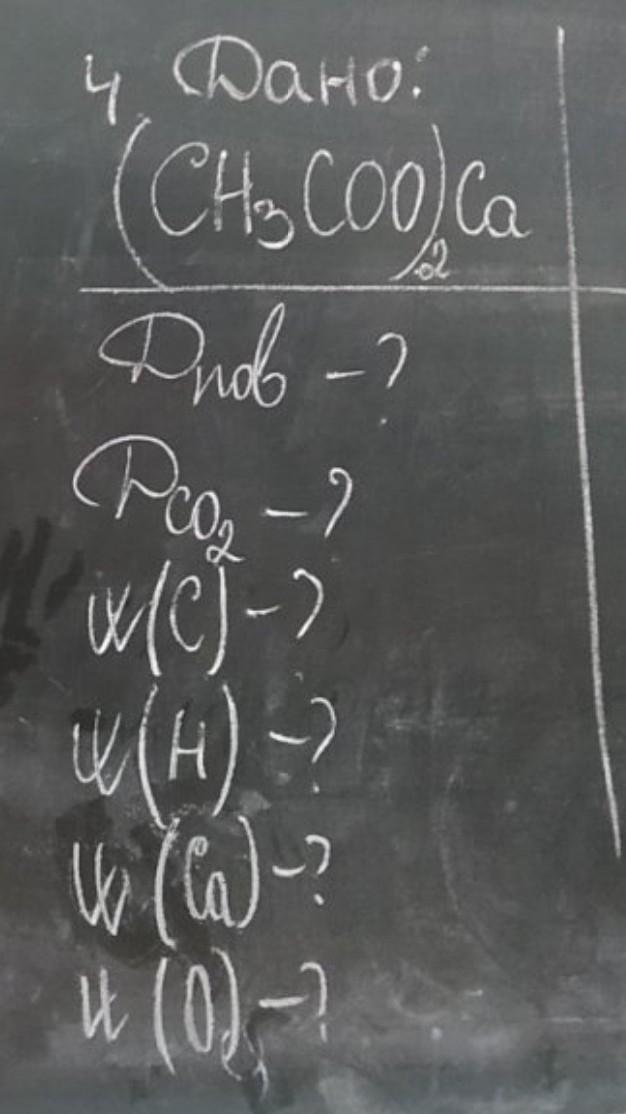 4 Дано:
(CH₃COO)₂Ca
Dпов - ?
DCO₂ - ?
w(C) - ?
w(H) - ?
w(Ca) - ?
w(O) - ?